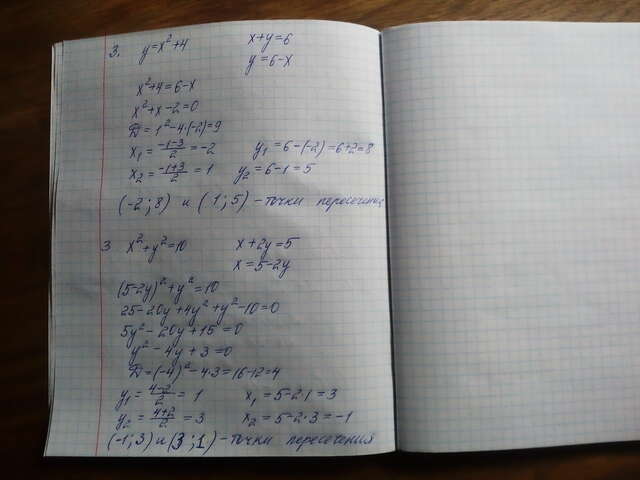 3. y=x²+4 x+y=6
y=6-x
x²+4=6-x
x²+x-2=0
D=1²-4·(-2)=9
x₁=(-1-3)/2=-2 y₁=6-(-2)=6+2=8
x₂=(-1+3)/2=1 y₂=6-1=5
(-2;8) и (1;5) - точки пересечения
3 x²+y²=10 x+2y=5
x=5-2y
(5-2y)²+y²=10
25-20y+4y²+y²-10=0
5y²-20y+15=0
y²-4y+3=0
D=(-4)²-4·3=16-12=4
y₁=(4-2)/2=1 x₁=5-2·1=3
y₂=(4+2)/2=3 x₂=5-2·3=-1
(-1;3) и (3;1) - точки пересечения